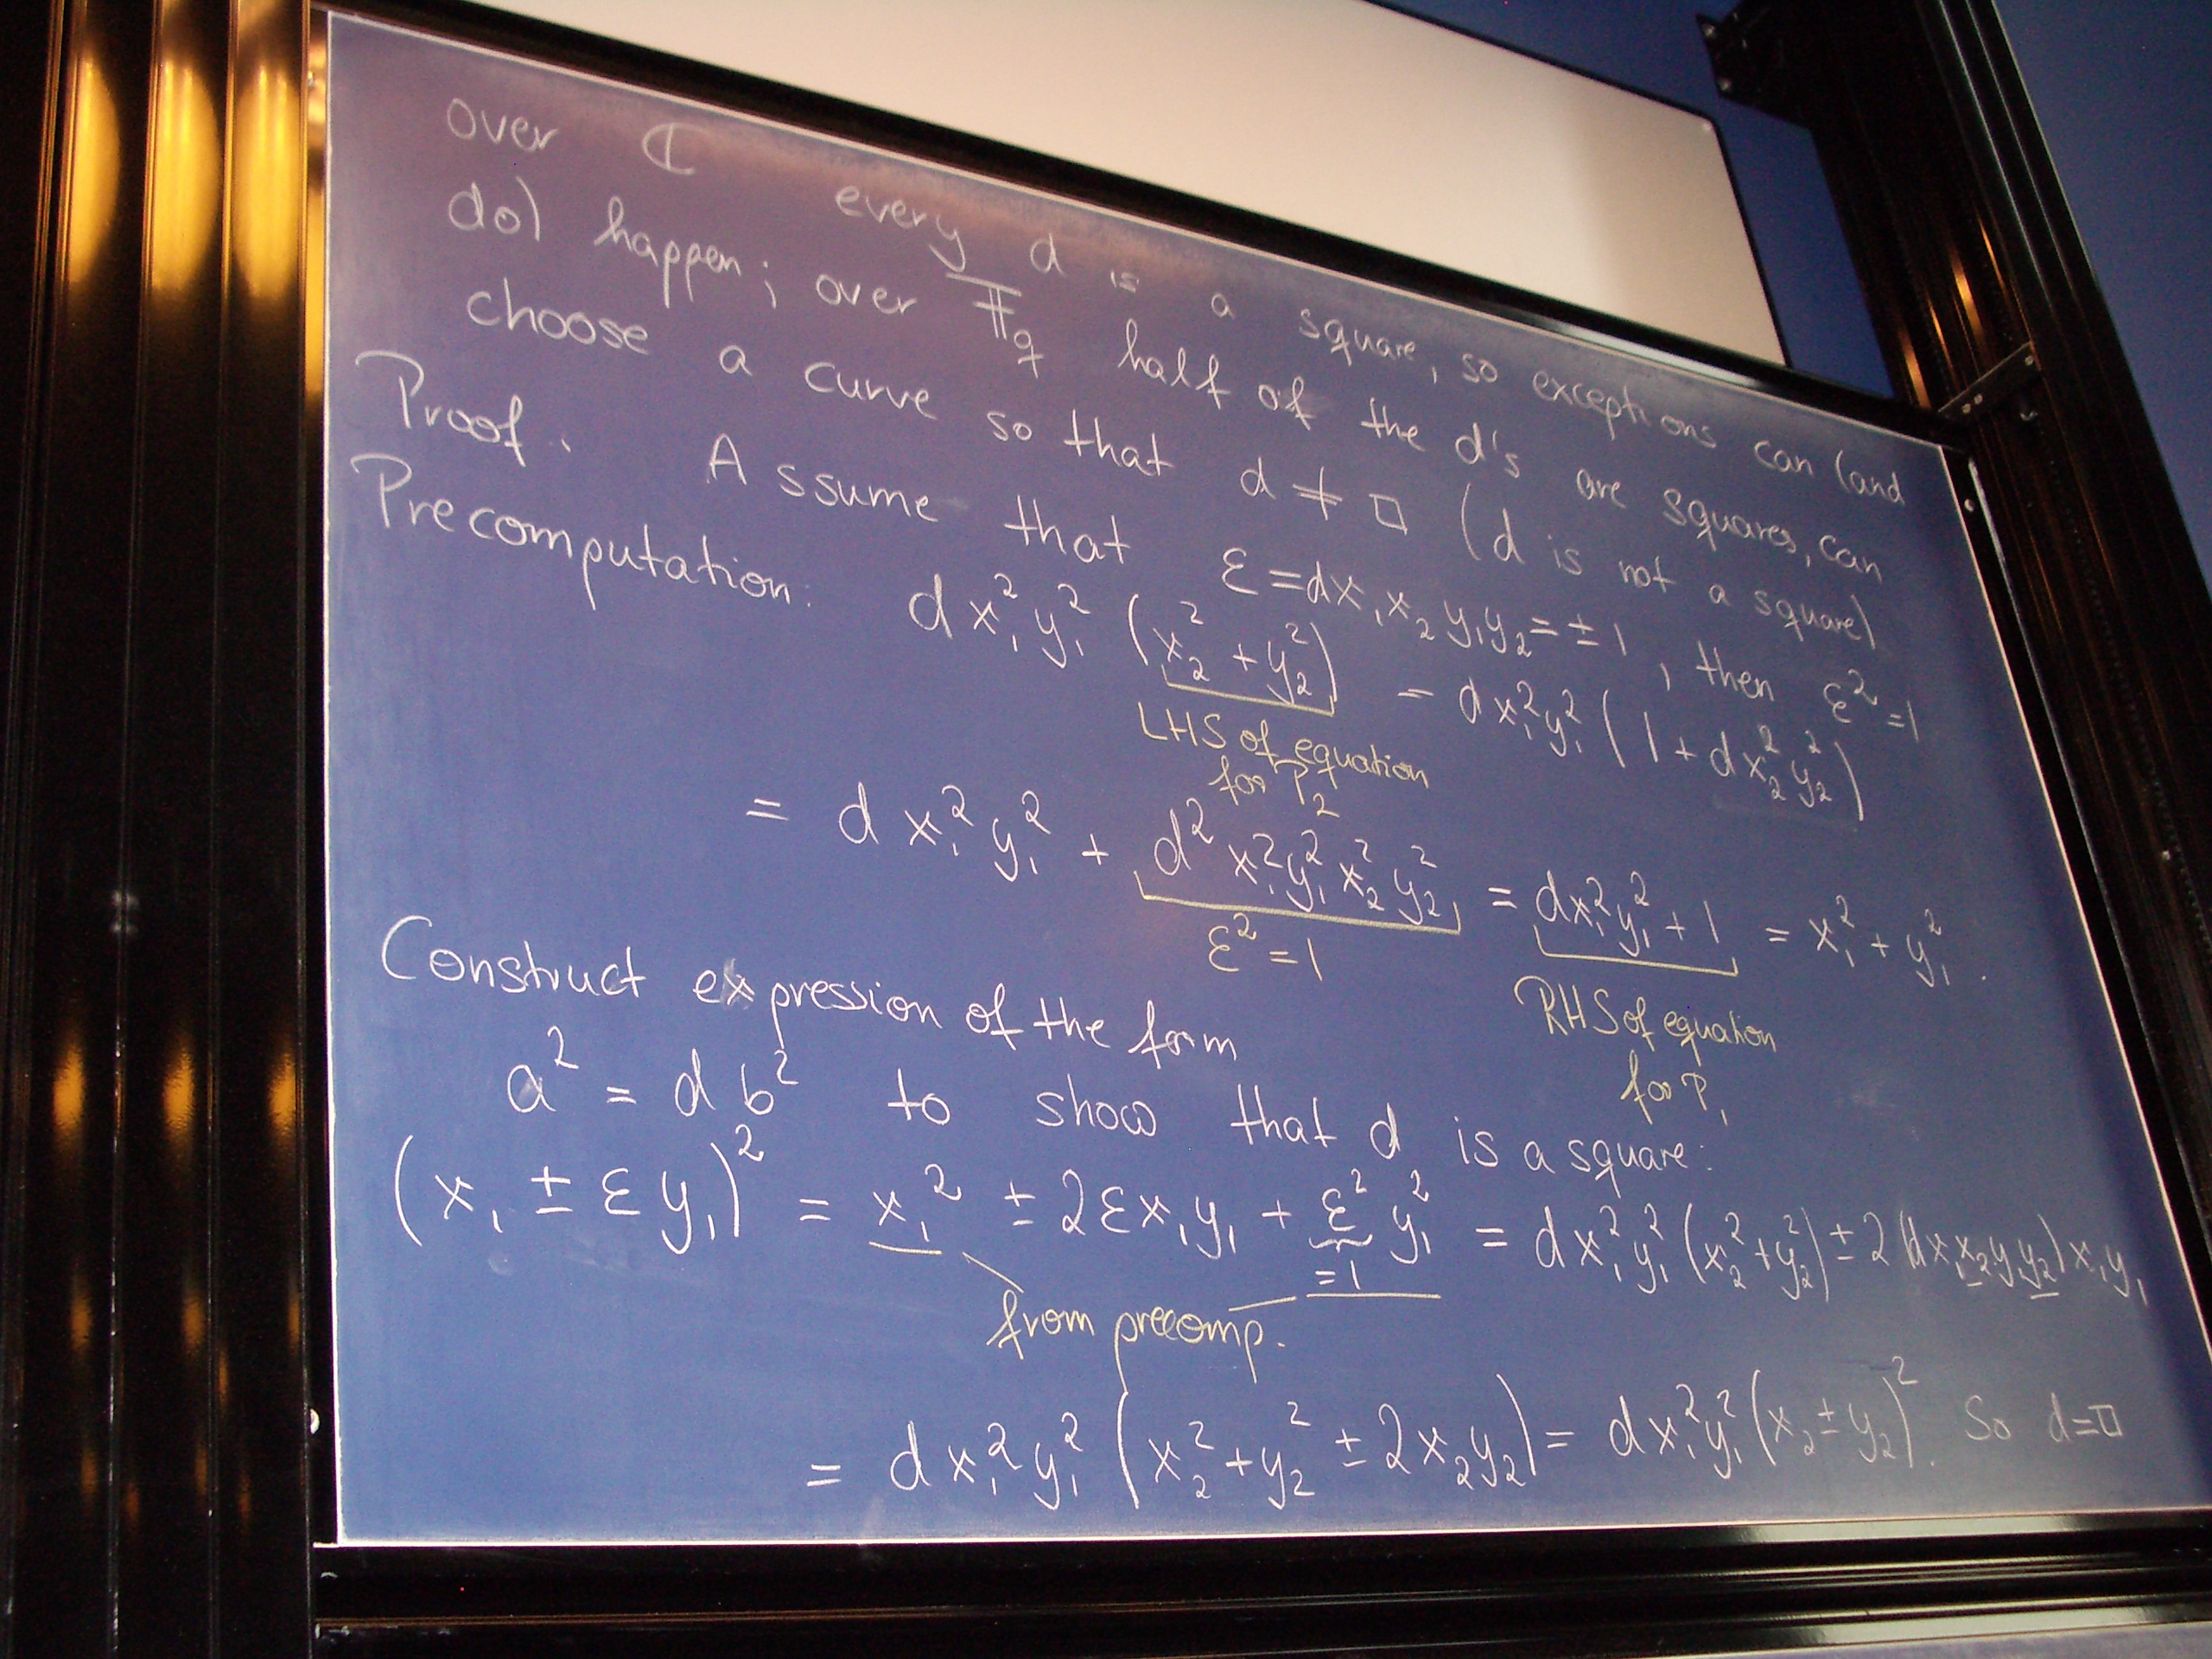 over ℂ every d is a square, so exceptions can (and
do) happen; over 𝔽_q half of the d's are squares, can
choose a curve so that d ≠ □ (d is not a square)
Proof. Assume that ε = dx₁x₂y₁y₂ = ±1, then ε² = 1
Precomputation: dx₁²y₁² (x₂² + y₂²) = dx₁²y₁² (1 + dx₂²y₂²)
LHS of equation
for P₂
= dx₁²y₁² + d²x₁²y₁²x₂²y₂² = dx₁²y₁² + 1 = x₁² + y₁².
ε² = 1
RHS of equation
for P₁
Construct expression of the form
a² = db² to show that d is a square:
(x₁ ± εy₁)² = x₁² ± 2εx₁y₁ + ε²y₁² = dx₁²y₁² (x₂² + y₂²) ± 2(dx₁x₂y₁y₂)x₁y₁
=1
from precomp.
= dx₁²y₁² (x₂² + y₂² ± 2x₂y₂) = dx₁²y₁² (x₂ ± y₂)². So d = □